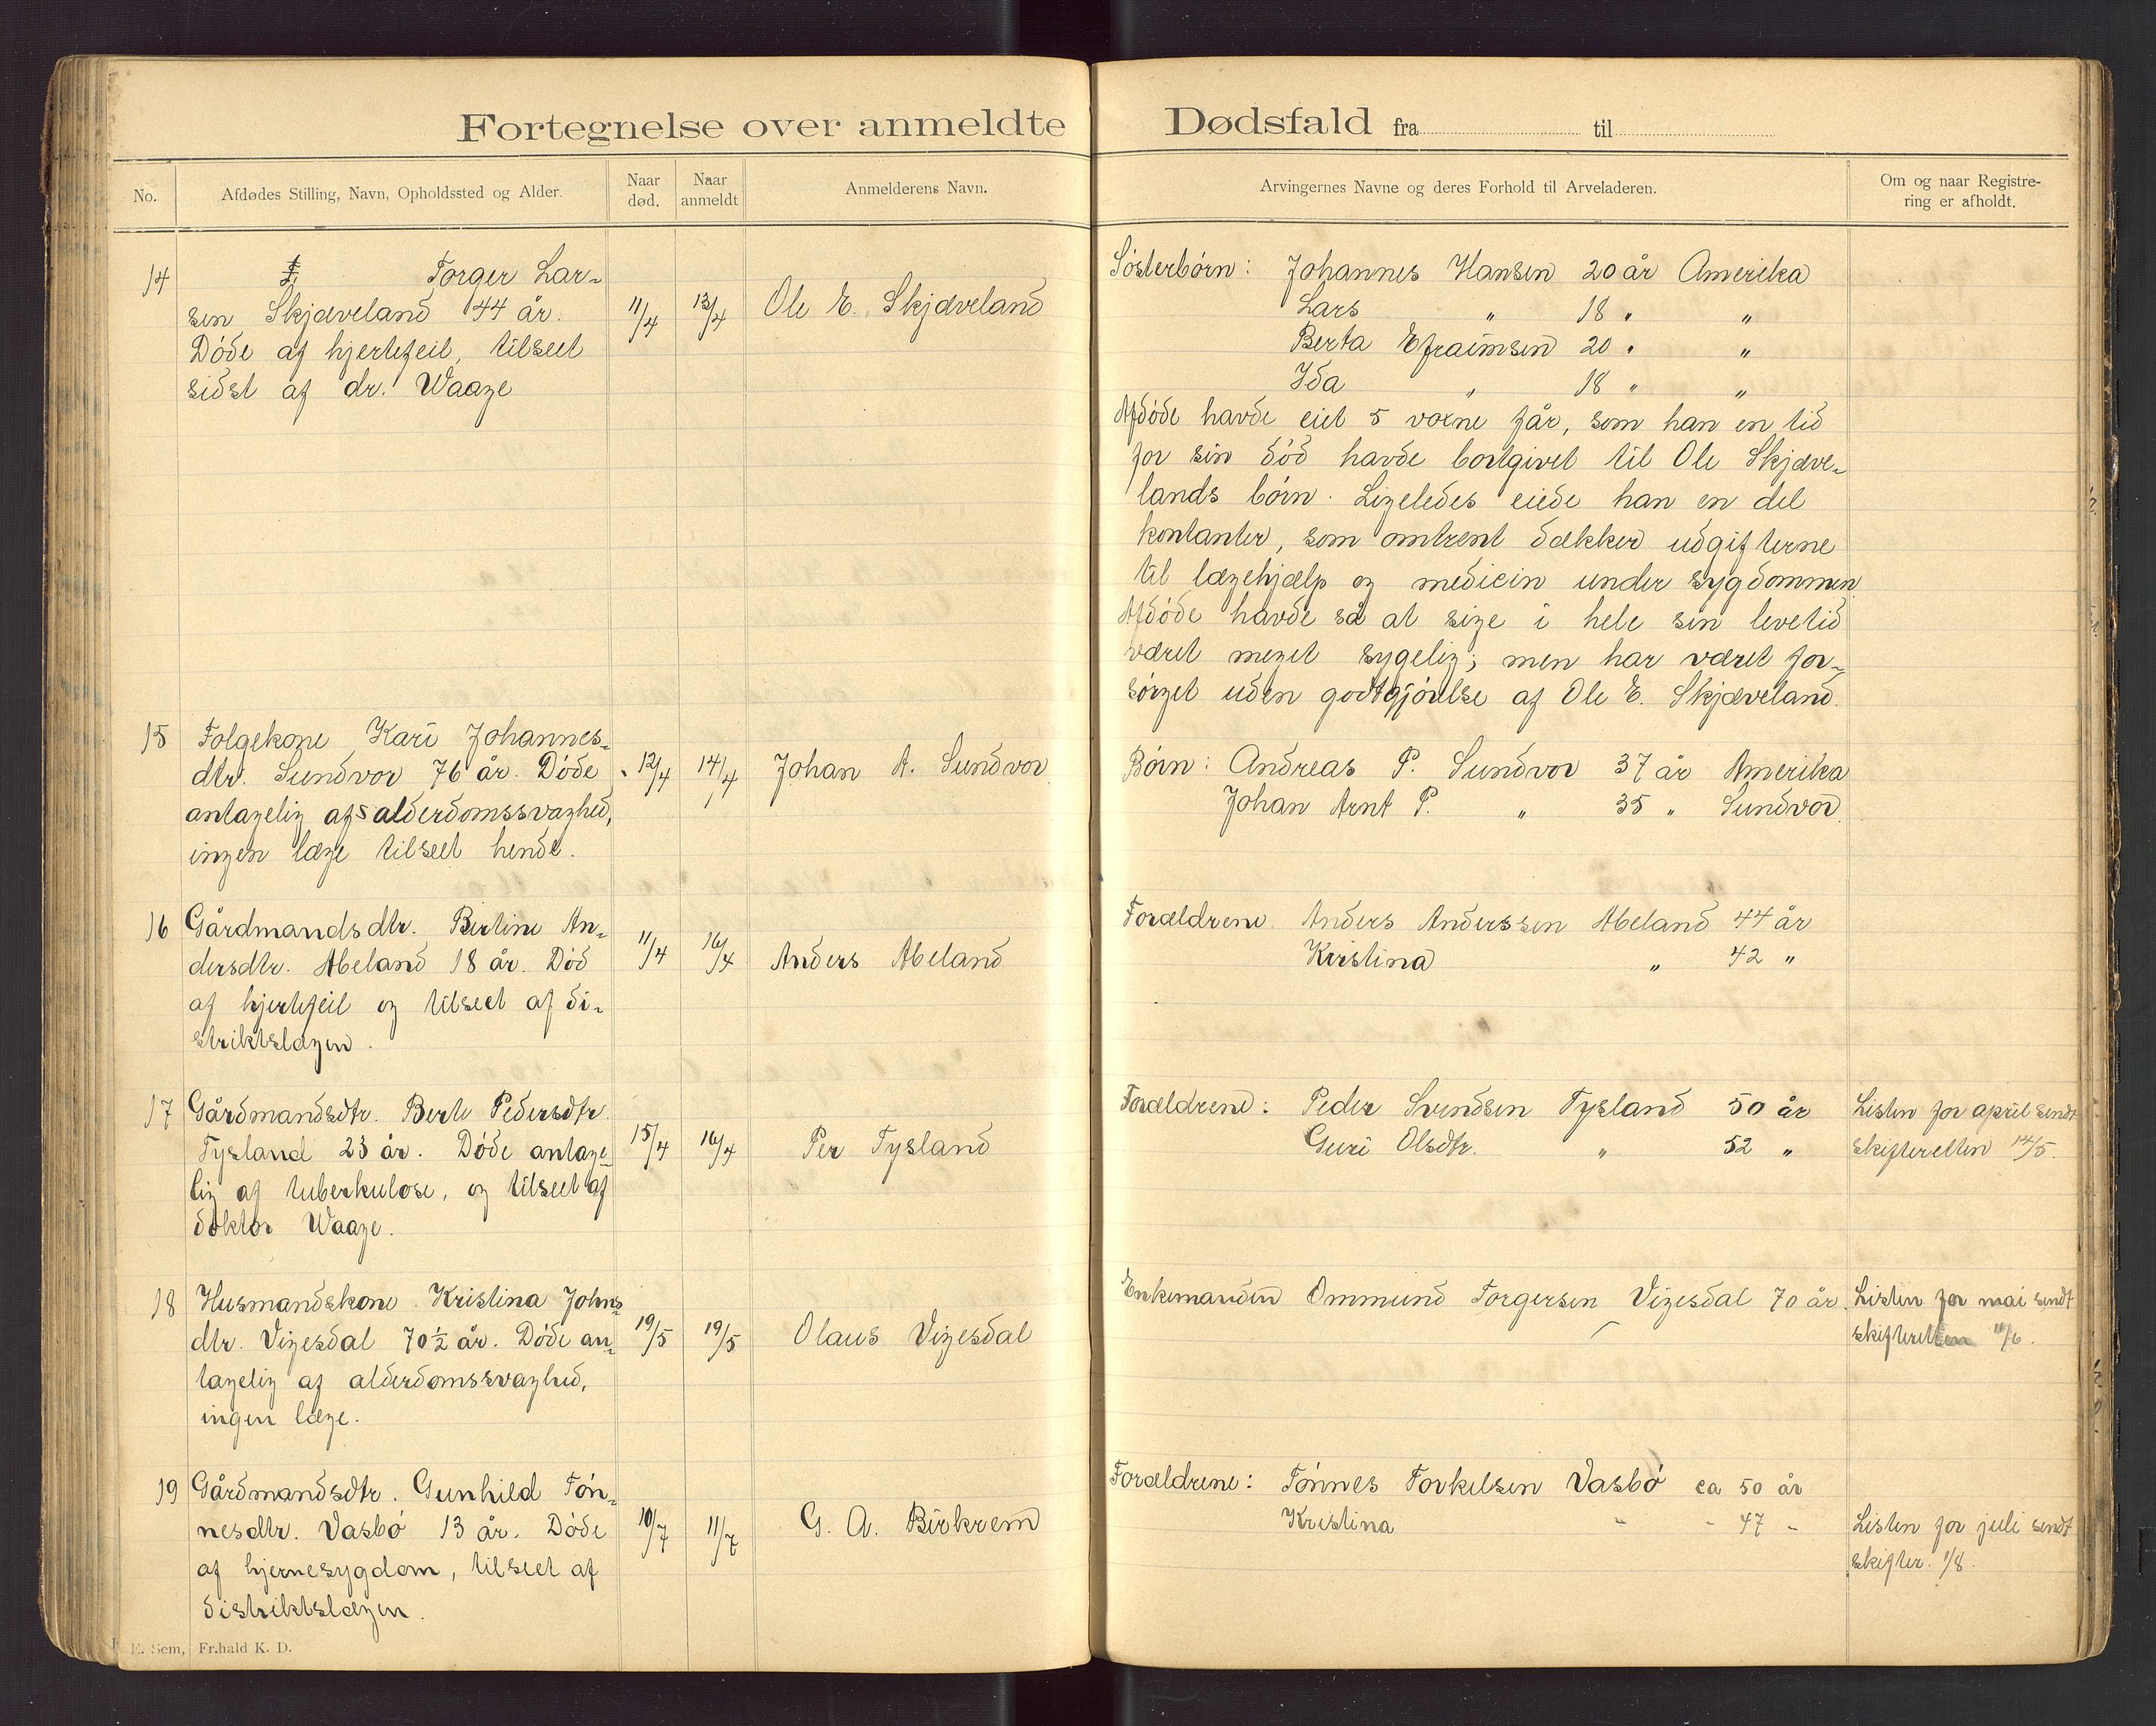 Fortegnelse over anmeldte Dødsfald fra til
No.
Afdødes Stilling, Navn, Opholdssted og Alder.
Naar
død.
Naar
anmeldt
Anmelderens Navn.
Arvingernes Navne og deres Forhold til Arveladeren.
Om og naar Registre-
ring er afholdt.
14
Torger Lar-
sen Skjæveland 44 år.
Døde af hjertefeil, tilseet
sidst af dr. Waage
11/4
13/4
Ole E. Skjæveland
Søsterbørn: Johannes Hansen 20 år Amerika
Lars " 18 " "
Berta Efraimsen 20 " "
Ida " 18 " "
Afdøde havde eiet 5 voxne får, som han en tid
før sin død havde bortgivet til Ole Skjæve-
lands børn. Ligeledes eiede han en del
kontanter, som omtrent dækker udgifterne
til lægehjælp og medicin under sygdommen
Afdøde havde så at sige i hele sin levetid
været meget sygelig; men har været for-
sørget uden godtgjørelse af Ole E. Skjæveland.
15
Folgekone Kari Johannes-
dtr. Sundvor 76 år. Døde
antagelig af alderdomssvaghed,
ingen læge tilseet hende.
12/4
14/4
Johan A. Sundvor
Børn: Andreas P. Sundvor 37 år Amerika
Johan Arnt P. " 35 " Sundvor.
16
Gårdmandsdtr. Bertine An-
dersdtr. Abeland 18 år. Død
af hjertefeil og tilseet af di-
striktslægen.
11/4
16/4
Anders Abeland
Forældrene Anders Anderssen Abeland 44 år
Kristina " 42 "
17
Gårdmandsdtr. Berte Pedersdtr.
Tysland 23 år. Døde antage-
lig af tuberkulose, og tilseet af
doktor Waage.
15/4
16/4
Per Tysland
Forældrene: Peder Svendsen Tysland 50 år
Guri Olsdtr. " 52 "
Listen for april sendt
skifteretten 14/5.
18
Husmandskone Kristina Johns-
dtr. Vigesdal 70½ år. Døde an-
tagelig af alderdomssvaghed,
ingen læge.
19/5
19/5
Olaus Vigesdal
Enkemanden Ommund Torgersen Vigesdal 70 år.
Listen for mai sendt
skifteretten 11/6.
19
Gårdmandsdtr. Gunhild Tøn-
nesdtr. Vasbø 13 år. Døde
af hjernesygdom, tilseet af
distriktslægen.
10/7
11/7
G. A. Birkrem
Forældrene: Tønnes Torkelsen Vasbø ca 50 år
Kristina - - 47 -
Listen for juli sendt
skifter. 1/8.
E. Sem, Fr.hald K. D.